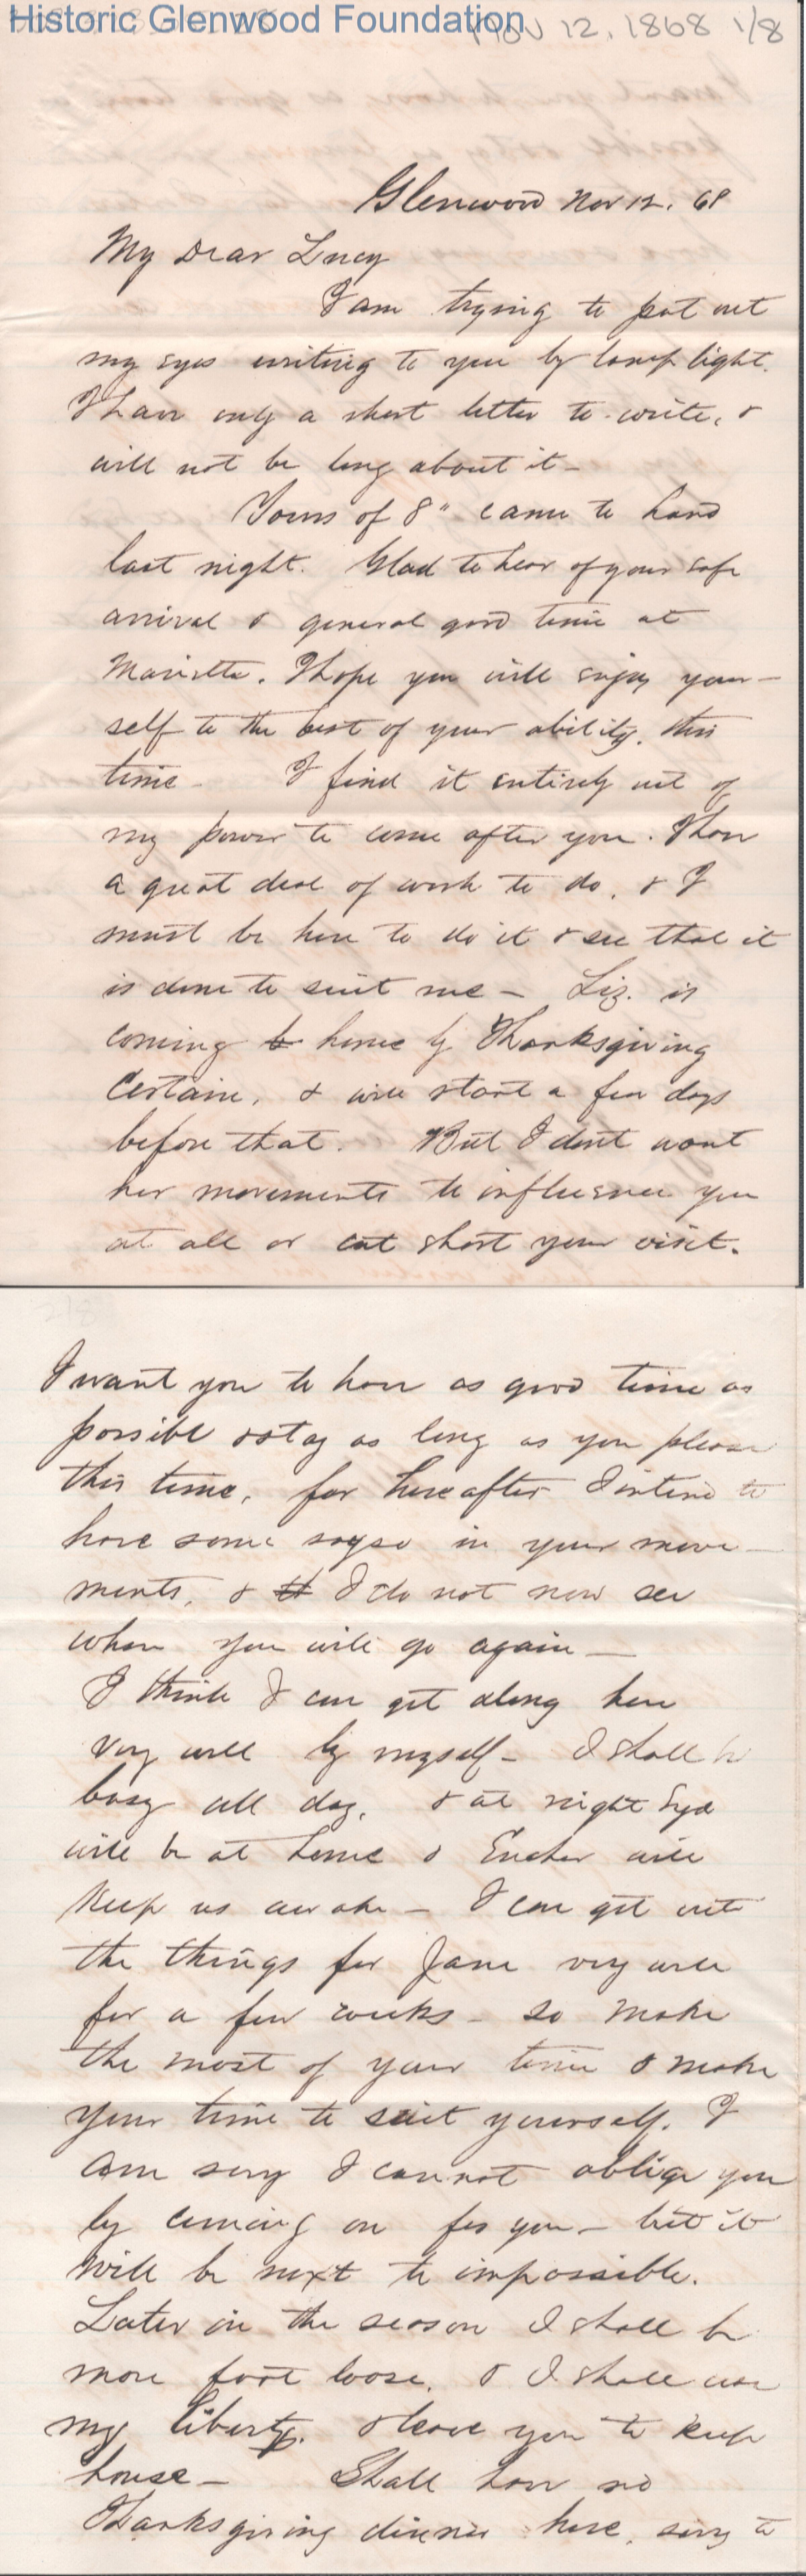 Historic Glenwood Foundation
Nov 12, 1868 1/8
Glenwood Nov 12. 68
My Dear Lucy
I am trying to put out
my eyes writing to you by lamp light.
I have only a short letter to write, &
will not be long about it -
Yours of 8" came to hand
last night. Glad to hear of your safe
arrival & general good time at
Marietta. I hope you will enjoy your-
self to the best of your ability, this
time - I find it entirely out of
my power to come after you. I have
a great deal of work to do, & I
must be here to do it & see that it
is done to suit me - Liz. is
coming to home by Thanksgiving
Certain, & will start a few days
before that. But I dont want
her movements to influence you
at all or cut short your visit.
2/8
I want you to have as good time as
possible & stay as long as you please
this time, for hereafter I intend to
have some sayso in your move-
ments, & I do not now see
when you will go again -
I think I can get along here
very well by myself - I shall be
busy all day, & at night Syd
will be at home & will
keep us awake - I can get out
the things for Jane very well
for a few weeks - so make
the most of your time & make
your time to suit yourself. I
am sorry I cannot oblige you
by coming on for you - but it
will be next to impossible.
Later in the season I shall be
more foot loose, & I shall use
my liberty, & leave you to keep
house - Shall have no
Thanksgiving dinner here, sorry to